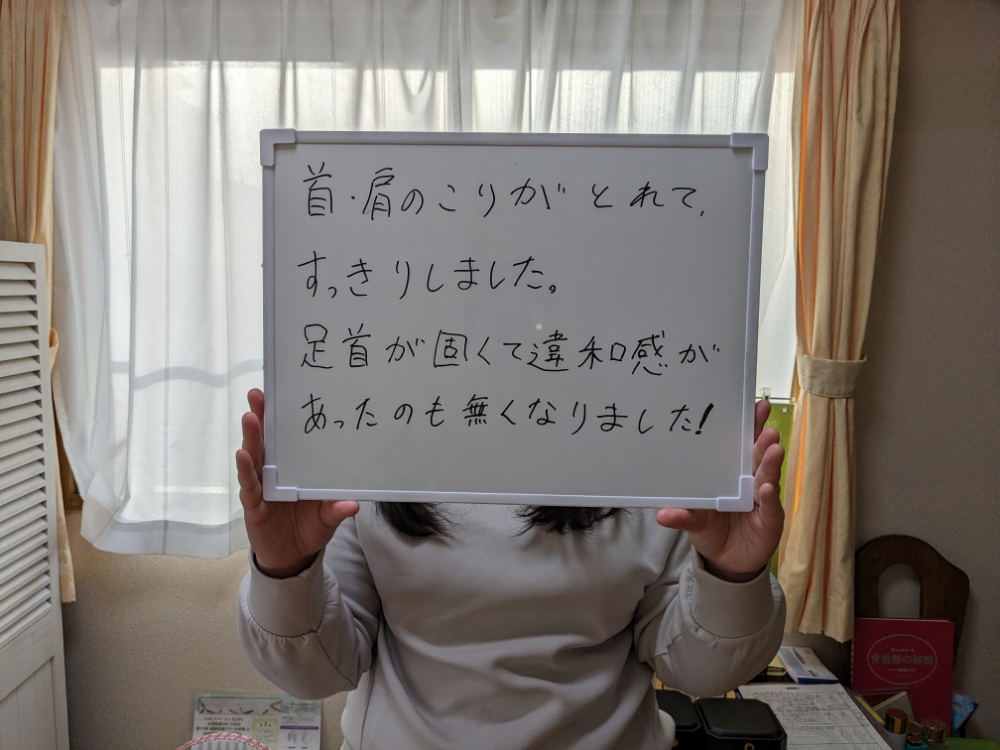 首・肩のこりがとれて、
すっきりしました。
足首が固くて違和感が
あったのも無くなりました!
骨格筋の解剖